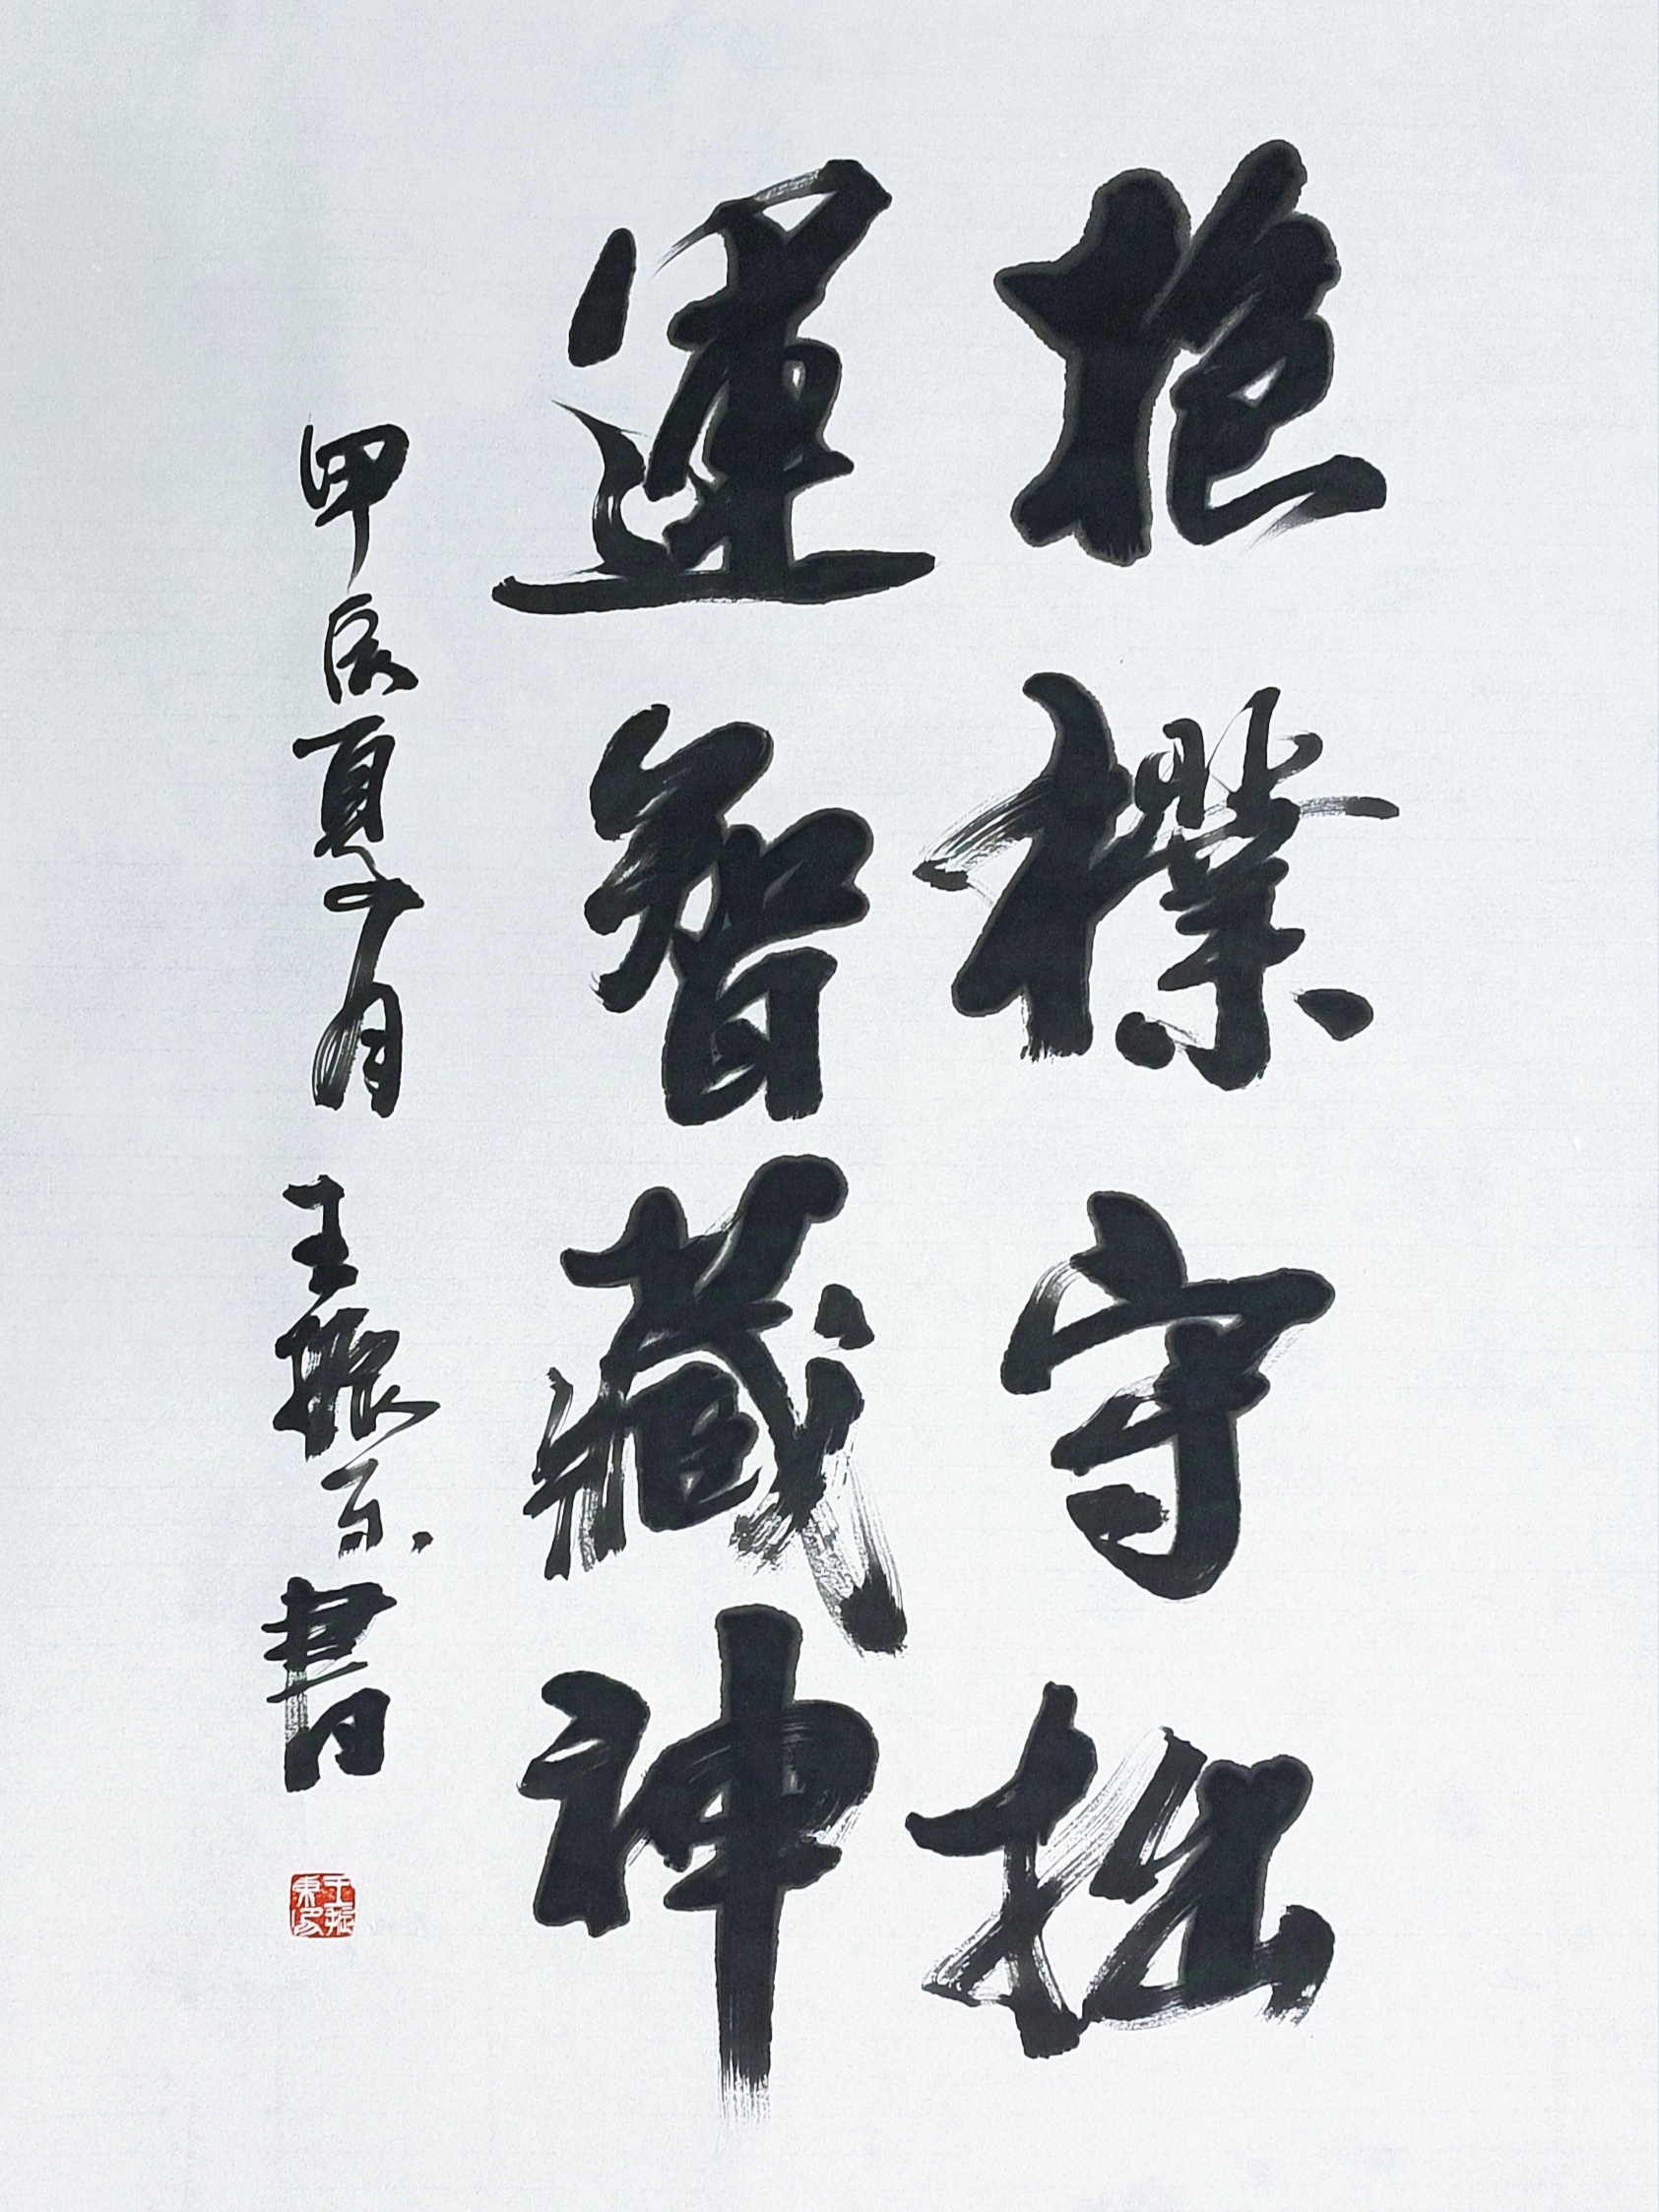 抱樸守拙
運智藏神
甲辰夏月 王振东書
王振東印